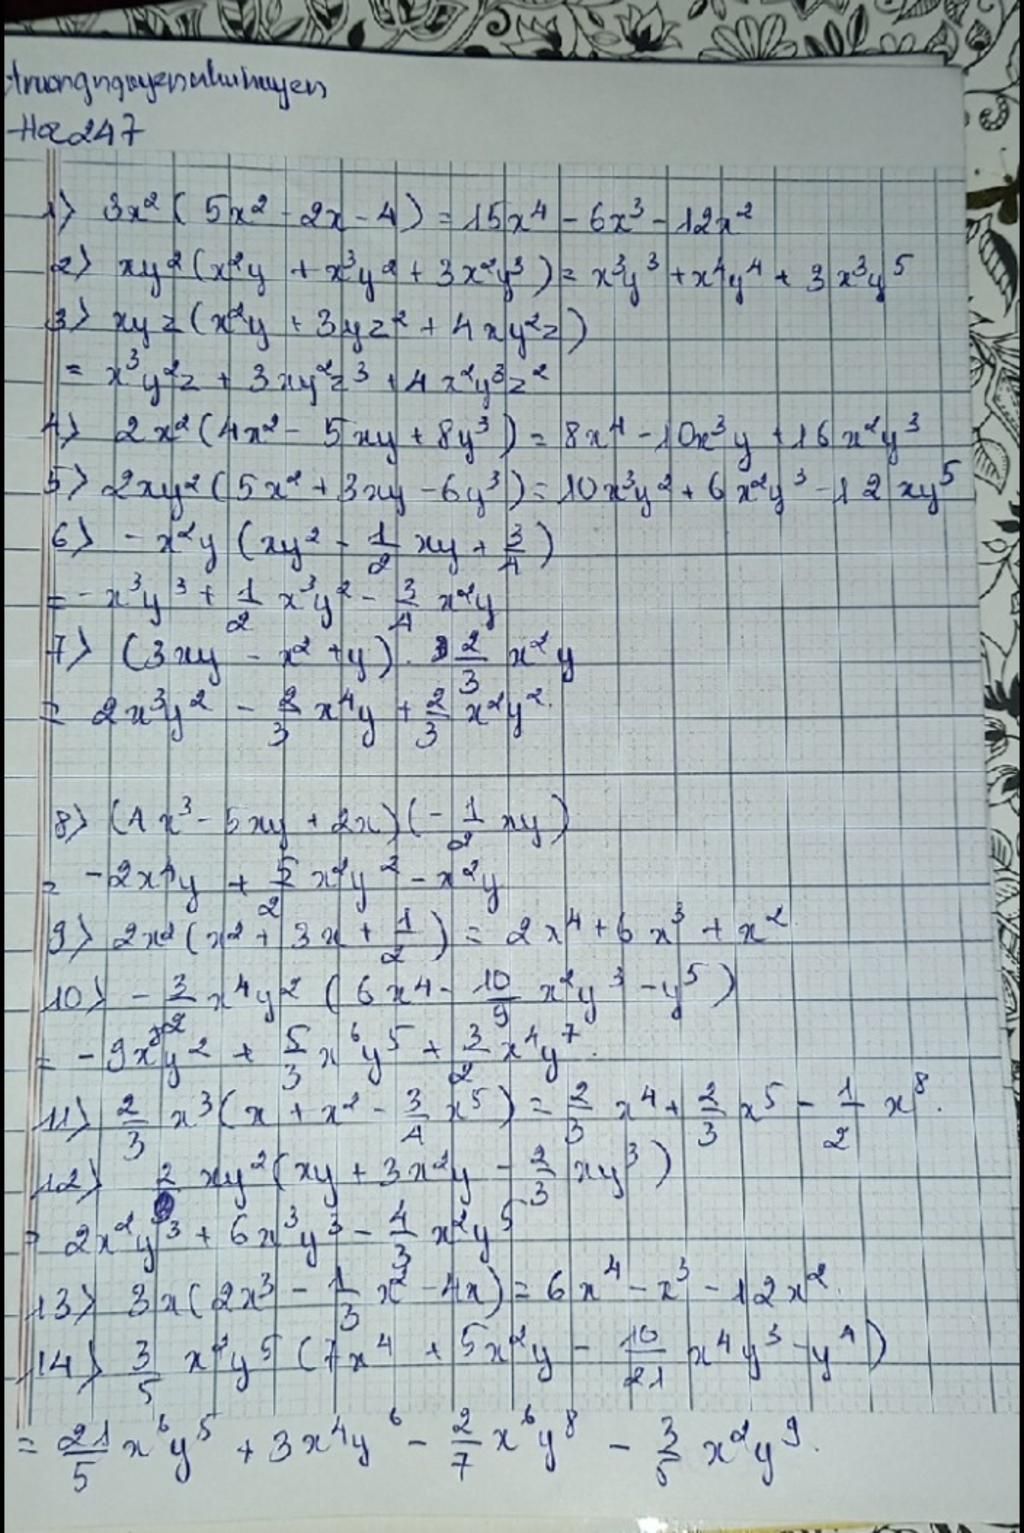 truongnguyennhuhuyen
Hoc247
1) 3x² ( 5x² - 2x - 4 ) = 15x⁴ - 6x³ - 12x²
2) xy² ( x²y + x³y² + 3x²y³ ) = x³y³ + x⁴y⁴ + 3x³y⁵
3) xyz ( x²y + 3yz² + 4xy²z )
= x³y²z + 3xy²z³ + 4x²y³z²
4) 2x² ( 4x² - 5xy + 8y³ ) = 8x⁴ - 10x³y + 16x²y³
5) 2xy² ( 5x² + 3xy - 6y³ ) = 10x³y² + 6x²y³ - 12xy⁵
6) - x²y ( xy² - 1/2 xy + 3/4 )
= - x³y³ + 1/2 x³y² - 3/4 x²y
7) ( 3xy - x² + y ) . 2/3 x²y
= 2x³y² - 2/3 x⁴y + 2/3 x²y².
8) ( 4x³ - 5xy + 2x ) ( - 1/2 xy )
= -2x⁴y + 5/2 x²y² - x²y
9) 2x² ( x² + 3x + 1/2 ) = 2x⁴ + 6x³ + x²
10) - 3/2 x⁴y² ( 6x⁴ - 10/9 x²y³ - y⁵ )
= - 9x⁸y² + 5/3 x⁶y⁵ + 3/2 x⁴y⁷.
11) 2/3 x³ ( x + x² - 3/4 x⁵ ) = 2/3 x⁴ + 2/3 x⁵ - 1/2 x⁸.
12) 2 xy² ( xy + 3x²y - 2/3 xy³ )
= 2x²y³ + 6x³y³ - 4/3 x²y⁵
13) 3x ( 2x³ - 1/3 x² - 4x ) = 6x⁴ - x³ - 12x².
14) 3/5 x²y⁵ ( 7x⁴ + 5x²y - 10/21 x⁴y³ - y⁴ )
= 21/5 x⁶y⁵ + 3x⁴y⁶ - 2/7 x⁶y⁸ - 3/5 x²y⁹.